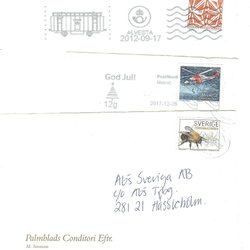 ALVESTA
2012-09-17
God Jul!
PostNord
12g
SVERIGE
Abs Sveriga AB
c/o Abs Trag.
281 21 Hässleholm.
Palmblads Conditori Eftr.